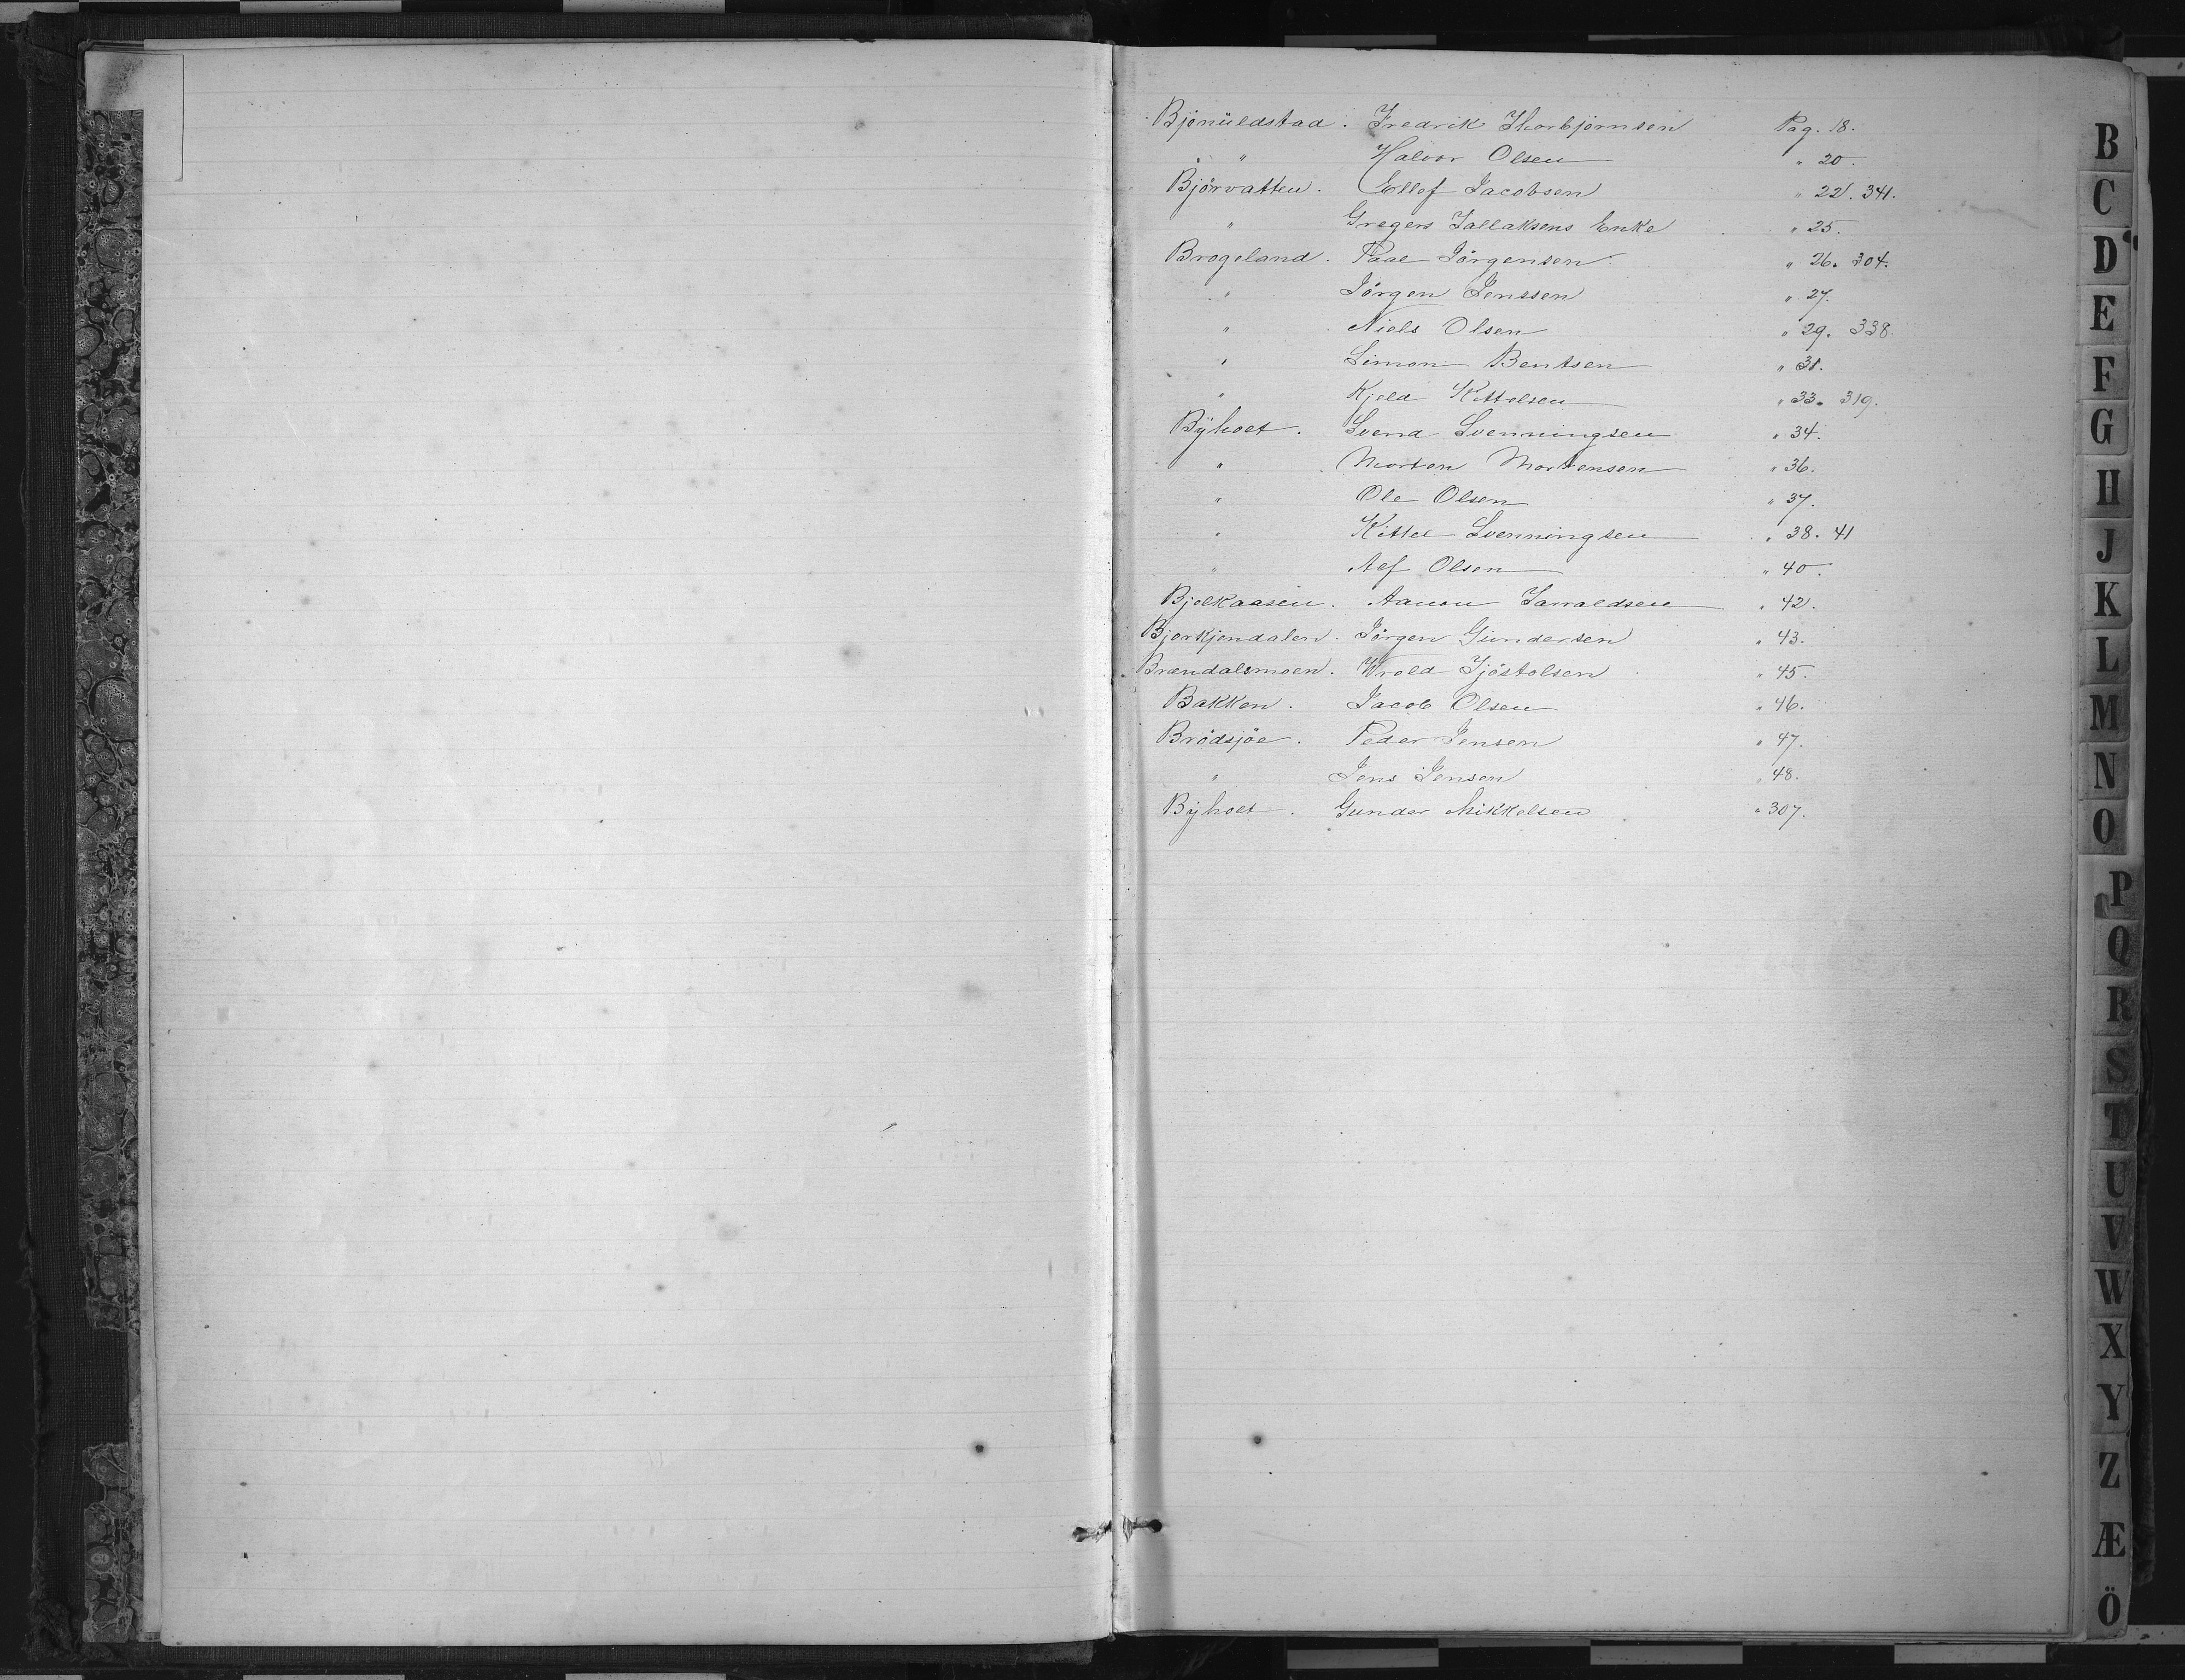 Bjönüldstad. Fredrik Thorbjörnsen Pag. 18.
" Halvor Olsen " 20.
Björvatten. Ellef Jacobsen " 22. 341.
" Gregers Tallaksens Enke " 25.
Brogeland. Paal Jörgensen " 26. 304.
" Jörgen Jenssen " 27.
" Niels Olsen " 29. 338.
" Simon Bentsen " 31.
" Kjeld Kittelsen " 33. 319.
Byholt. Svend Svenningsen " 34.
" Morten Mortensen " 36.
" Ole Olsen " 37.
" Kittel Svenningsen " 38. 41
" Alf Olsen " 40.
Bjelkaasen. Aanon Tarraldsen " 42.
Bjorkjendalen. Jörgen Gundersen " 43.
Brandalsmoen. Wrold Tjöstolsen " 45.
Bakken. Jacob Olsen " 46.
Brödsjöe. Peder Jensen " 47.
" Jens Jensen " 48.
Byholt. Gunder Mikkelsen " 307.
B
C
D
E
F
G
H
J
K
L
M
N
O
P
Q
R
S
T
U
V
W
X
Y
Z
Æ
Ö